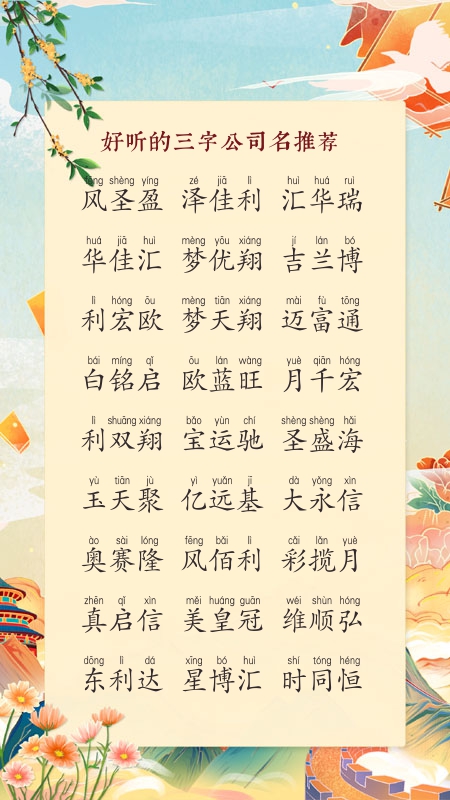 好听的三字公司名推荐
fēng shèng yíng zé jiā lì huì huá ruì
风圣盈 泽佳利 汇华瑞
huá jiā huì mèng yōu xiáng jí lán bó
华佳汇 梦优翔 吉兰博
lì hóng ōu mèng tiān xiáng mài fù tōng
利宏欧 梦天翔 迈富通
bái míng qǐ ōu lán wàng yuè qiān hóng
白铭启 欧蓝旺 月千宏
lì shuāng xiáng bǎo yùn chí shèng shèng hǎi
利双翔 宝运驰 圣盛海
yù tiān jù yì yuǎn jī dà yǒng xìn
玉天聚 亿远基 大永信
ào sài lóng fēng bǎi lì cǎi lǎn yuè
奥赛隆 风佰利 彩揽月
zhēn qǐ xìn měi huáng guān wéi shùn hóng
真启信 美皇冠 维顺弘
dōng lì dá xīng bó huì shí tóng héng
东利达 星博汇 时同恒